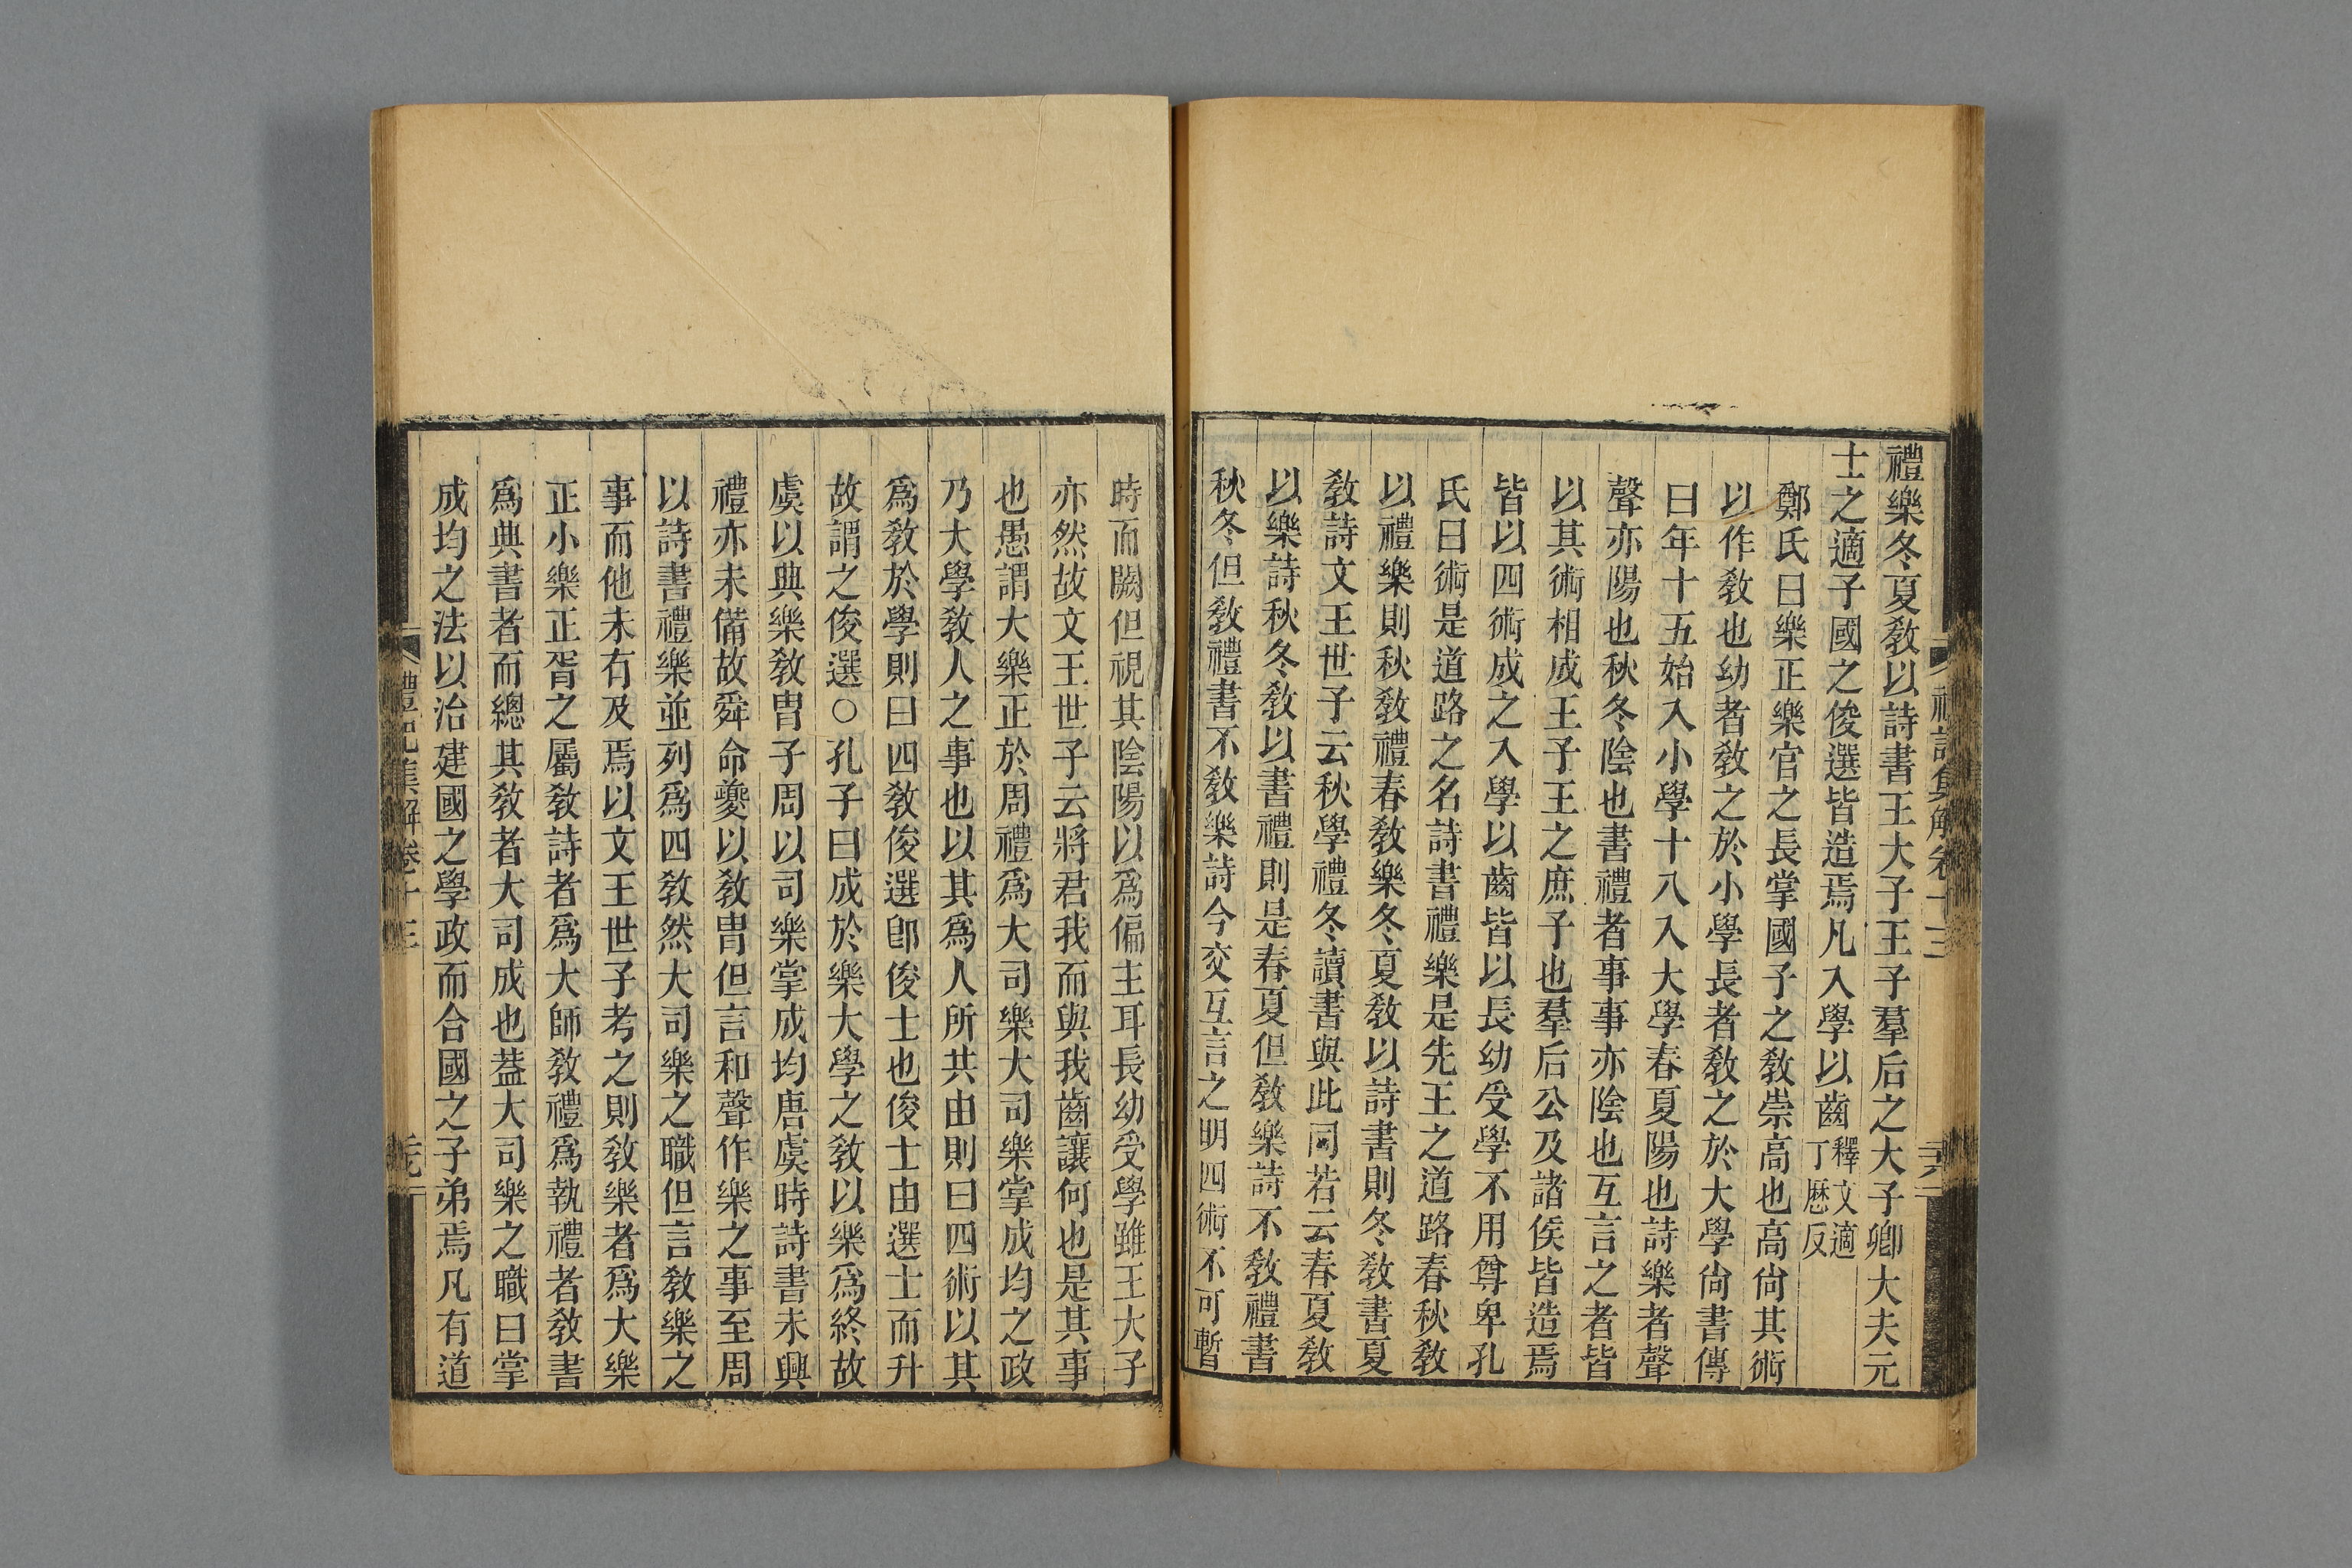 禮記集解卷十三
六
禮樂冬夏敎以詩書王大子王子羣后之大子卿大夫元
士之適子國之俊選皆造焉凡入學以齒釋文適丁厯反
鄭氏曰樂正樂官之長掌國子之敎崇高也高尙其術
以作敎也幼者敎之於小學長者敎之於大學尙書傳
曰年十五始入小學十八入大學春夏陽也詩樂者聲
聲亦陽也秋冬陰也書禮者事事亦陰也互言之者皆
以其術相成王子王之庶子也羣后公及諸侯皆造焉
皆以四術成之入學以齒皆以長幼受學不用尊卑孔
氏曰術是道路之名詩書禮樂是先王之道路春秋敎
以禮樂則秋敎禮春敎樂冬夏敎以詩書則冬敎書夏
敎詩文王世子云秋學禮冬讀書與此同若云春夏敎
以樂詩秋冬敎以書禮則是春夏但敎樂詩不敎禮書
秋冬但敎禮書不敎樂詩今交互言之明四術不可暫
時而闕但視其陰陽以爲偏主耳長幼受學雖王大子
亦然故文王世子云將君我而與我齒讓何也是其事
也愚謂大樂正於周禮爲大司樂大司樂掌成均之政
乃大學敎人之事也以其爲人所共由則曰四術以其
爲敎於學則曰四敎俊選卽俊士也俊士由選士而升
故謂之俊選○孔子曰成於樂大學之敎以樂爲終故
虞以典樂敎胄子周以司樂掌成均唐虞時詩書未興
禮亦未備故舜命夔以敎胄但言和聲作樂之事至周
以詩書禮樂並列爲四敎然大司樂之職但言敎樂之
事而他未有及焉以文王世子考之則敎樂者爲大樂
正小樂正胥之屬敎詩者爲大師敎禮爲執禮者敎書
爲典書者而總其敎者大司成也葢大司樂之職曰掌
成均之法以治建國之學政而合國之子弟焉凡有道
禮記集解卷十三